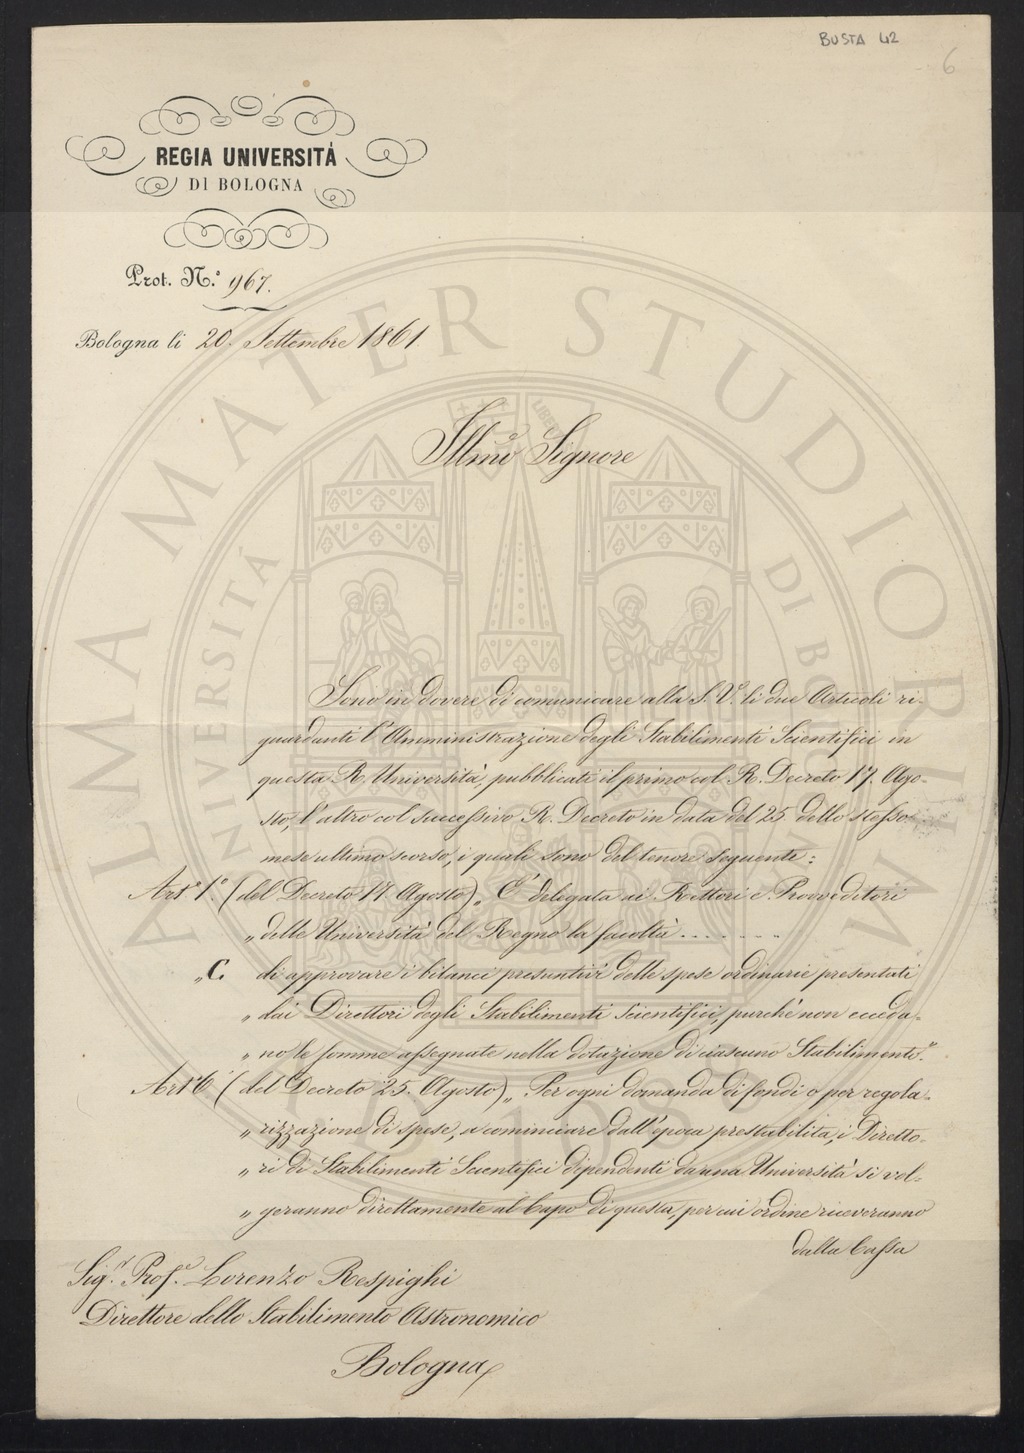 BUSTA 42
6
REGIA UNIVERSITÁ
DI BOLOGNA
Prot. N.º 967.
Bologna li 20. Settembre 1861
Illmo Signore
Sono in dovere di comunicare alla S. V.ª li due Articoli ri-
guardanti l'Amministrazione degli Stabilimenti Scientifici in
questa R. Università, pubblicati il primo col R. Decreto 17. Ago-
sto, l'altro col successivo R. Decreto in data del 25 dello stesso
mese ultimo scorso, i quali sono del tenore seguente:
Art.º 1.º (del Decreto 17. Agosto) „ È delegata ai Rettori e Provveditori
„ delle Università del Regno la facoltà . . . . . . .
„ C. di approvare i bilanci presuntivi delle spese ordinarie presentati
„ dai Direttori degli Stabilimenti Scientifici, purchè non ecceda-
„ no le somme assegnate nella dotazione di ciascuno Stabilimento."
Art.º 6 (del Decreto 25. Agosto) „ Per ogni domanda di fondi o per regola-
„ rizzazione di spese, a cominciare dall'epoca prestabilita, i Diretto-
„ ri di Stabilimenti Scientifici dipendenti da una Università si vol-
„ geranno direttamente al Capo di questa, per cui ordine riceveranno
dalla Cassa
Sig.r Prof.e Lorenzo Respighi
Direttore dello Stabilimento Astronomico
Bologna
ALMA MATER STUDIORUM
UNIVERSITÁ DI BOLOGNA